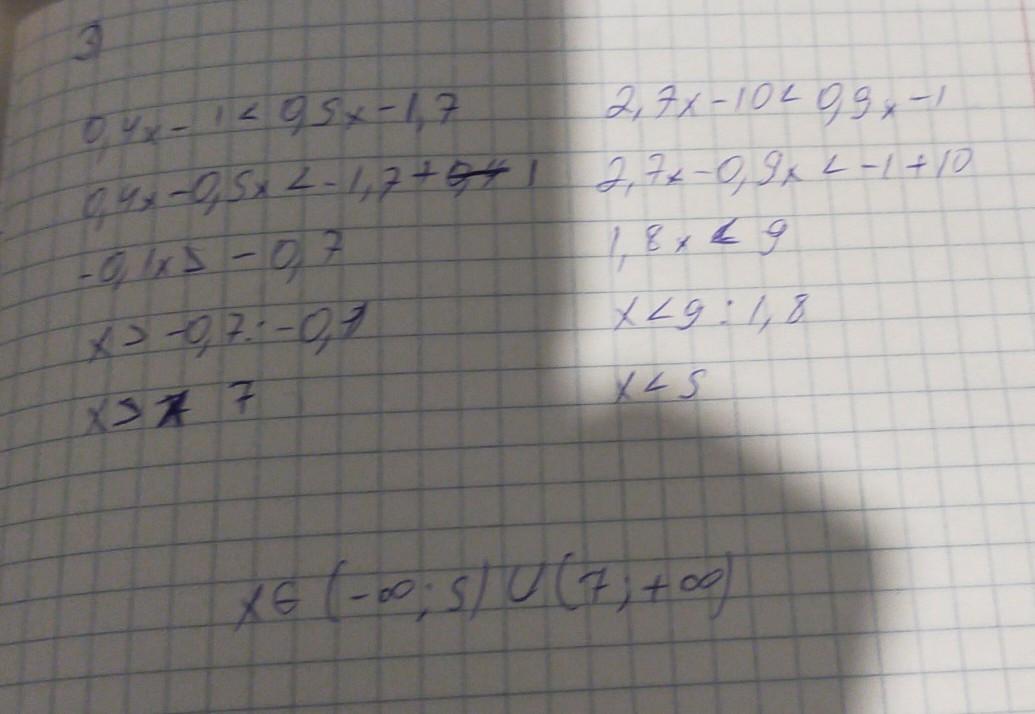 3
0,4x - 1 < 0,5x - 1,7
0,4x - 0,5x < -1,7 + 1
-0,1x > -0,7
x > -0,7 : -0,1
x > 7
2,7x - 10 < 0,9x - 1
2,7x - 0,9x < -1 + 10
1,8x < 9
x < 9 : 1,8
x < 5
x ∈ (-∞; 5) ∪ (7; +∞)